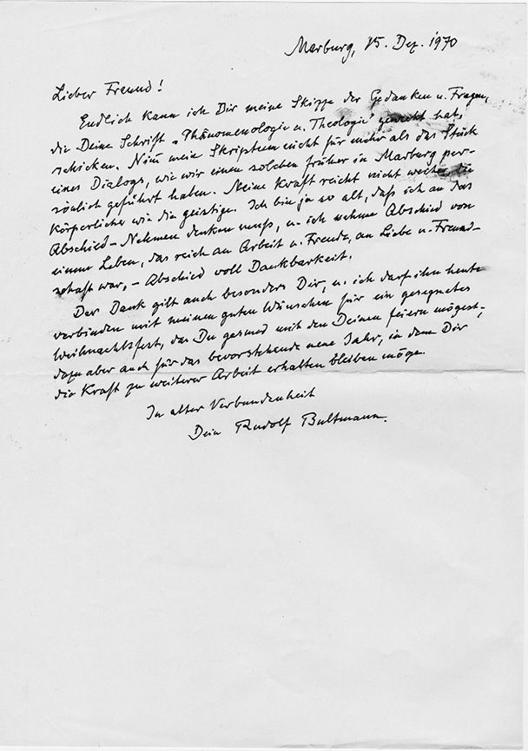 Marburg, 15. Dez. 1970
Lieber Freund!
Endlich kann ich Dir meine Skizze der Gedanken u. Fragen,
die Deine Schrift „Phänomenologie u. Theologie" geweckt hat,
schicken. Nimm mein Skriptum nicht für mehr als das Stück
eines Dialogs, wie wir einen solchen früher in Marburg per-
sönlich geführt haben. Meine Kraft reicht nicht weiter, die
körperliche wie die geistige. Ich bin ja so alt, daß ich an das
Abschied-Nehmen denken muß, u. ich nehme Abschied von
einem Leben, das reich an Arbeit u. Freude, an Liebe u. Freund-
schaft war, – Abschied voll Dankbarkeit.
Der Dank gilt auch besonders Dir, u. ich darf ihn heute
verbinden mit meinen guten Wünschen für ein gesegnetes
Weihnachtsfest, das Du gesund mit den Deinen feiern mögest,
dazu aber auch für das bevorstehende neue Jahr, in dem Dir
die Kraft zu weiterer Arbeit erhalten bleiben möge.
In alter Verbundenheit
Dein Rudolf Bultmann.